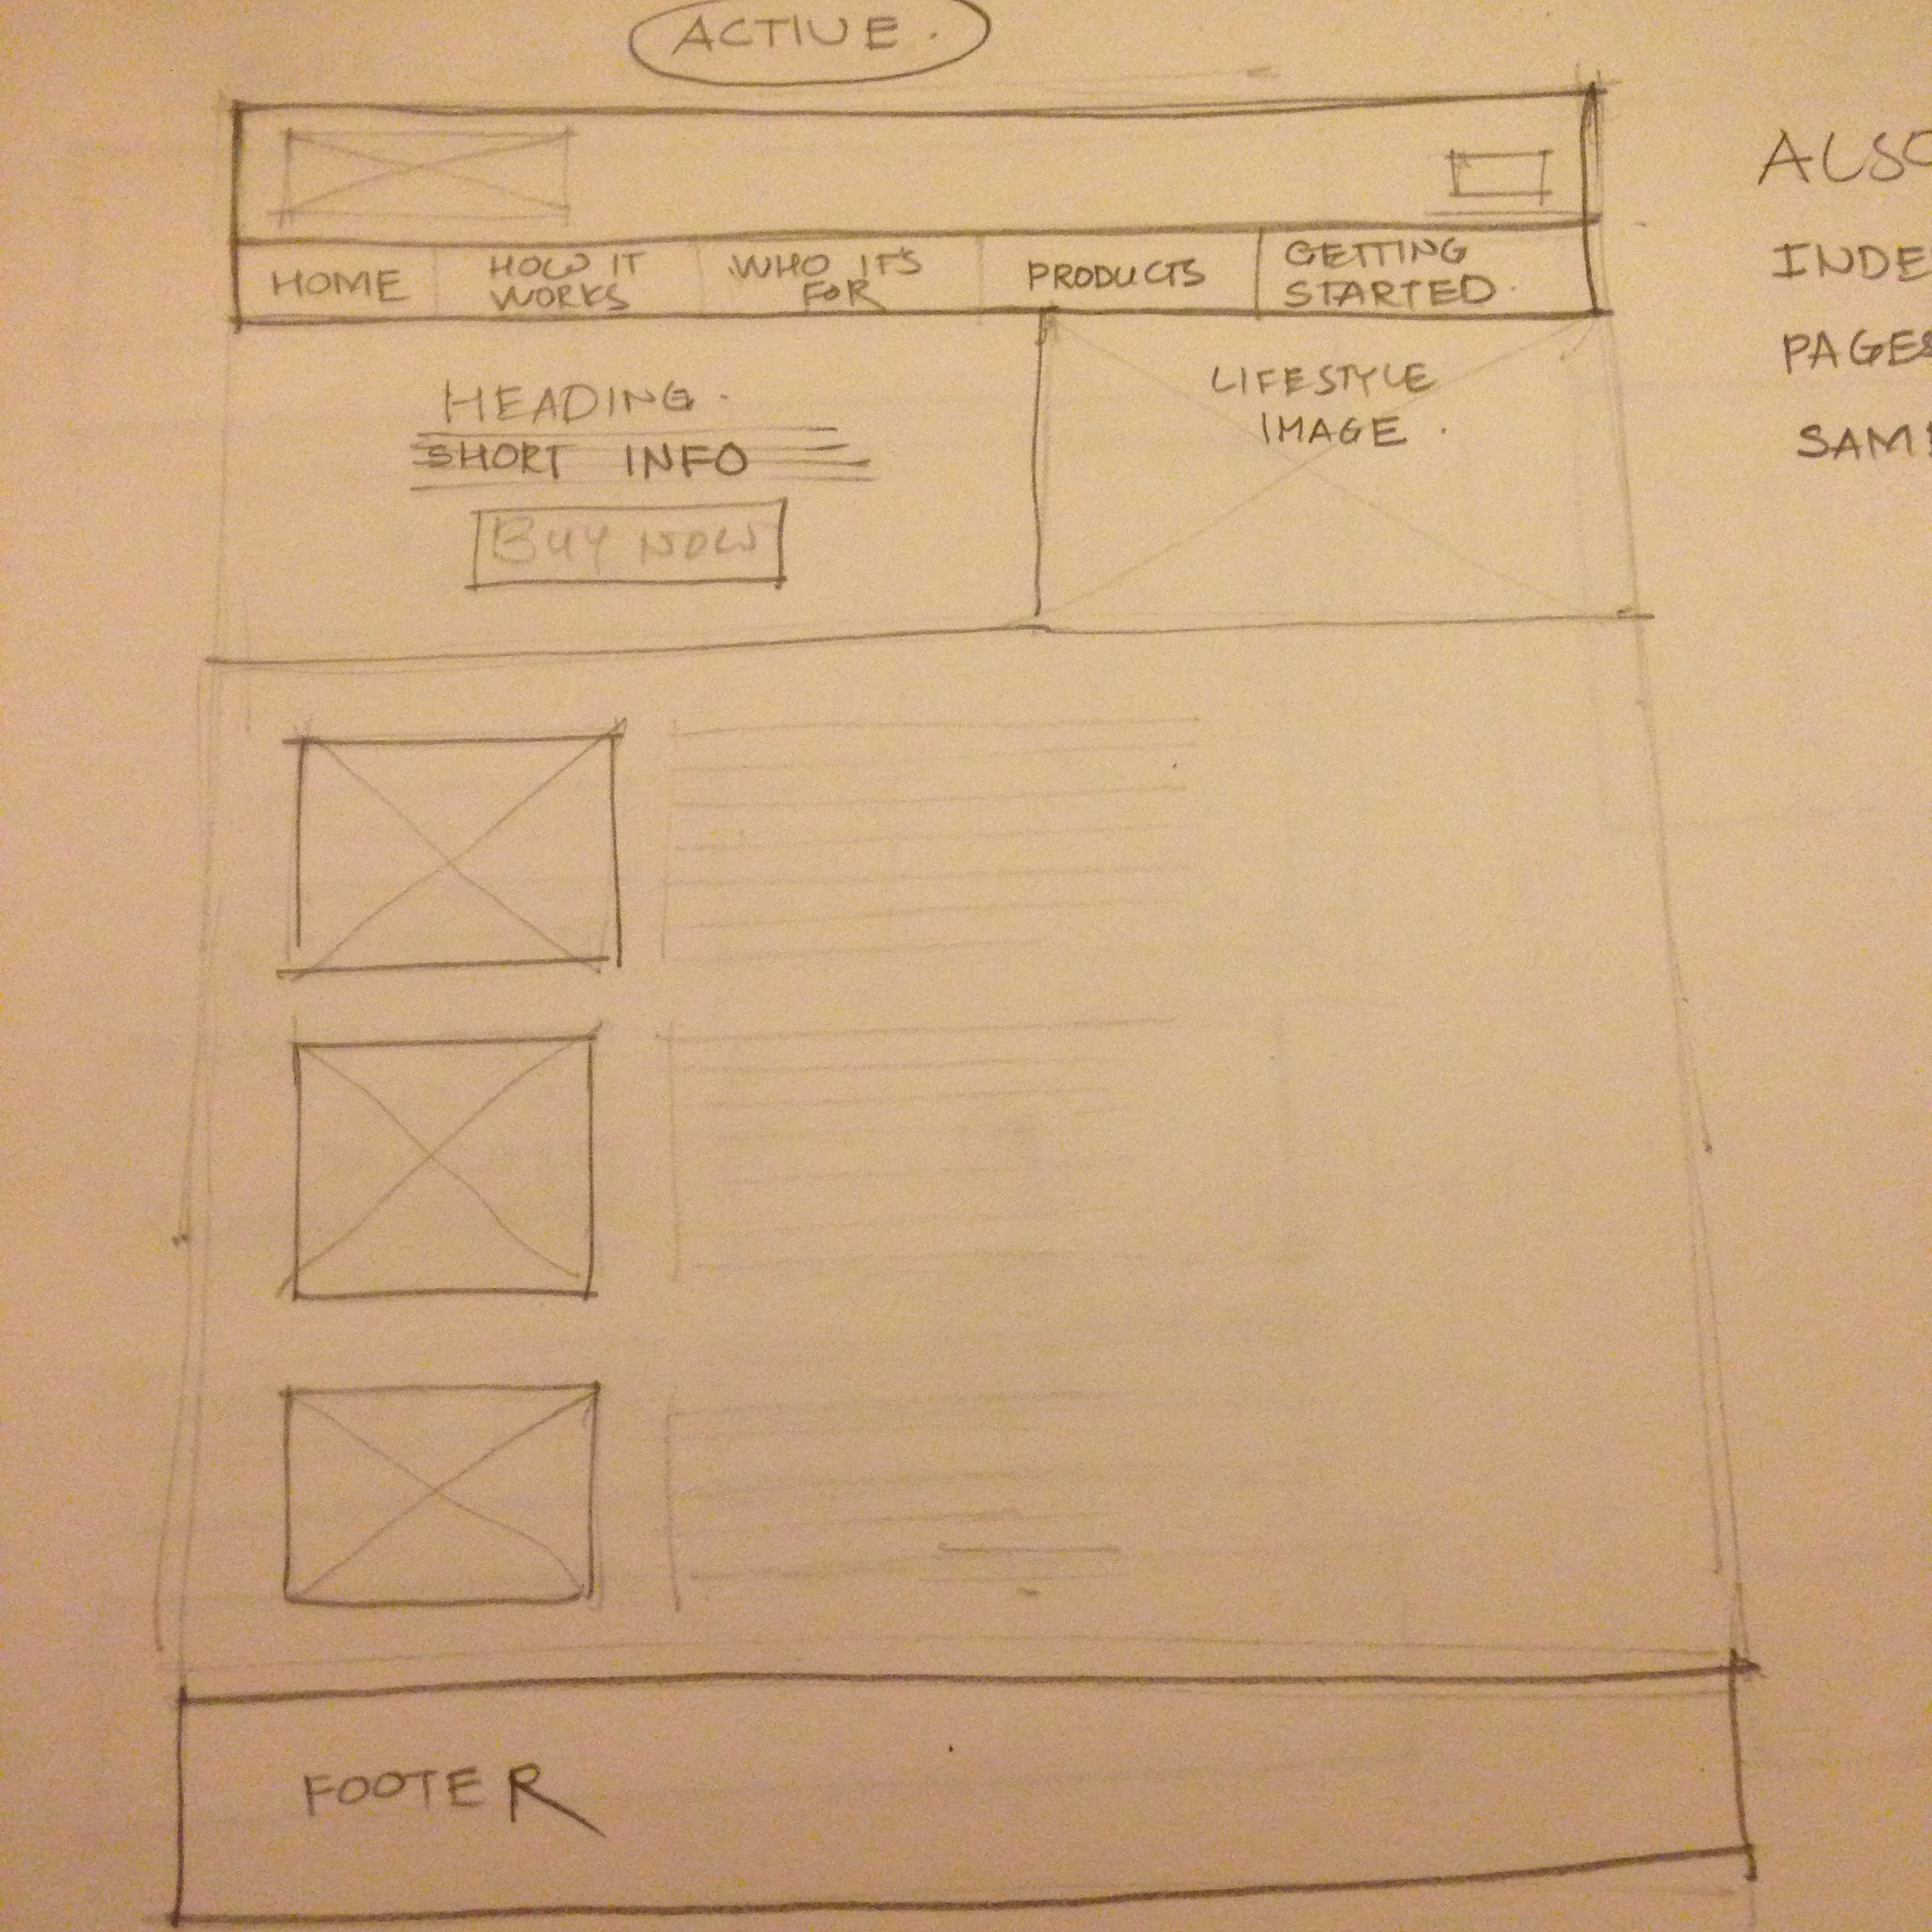 ACTIVE.
HOME
HOW IT
WORKS
WHO IT'S
FOR
PRODUCTS
GETTING
STARTED.
HEADING.
SHORT INFO
BUY NOW
LIFESTYLE
IMAGE.
FOOTER
PAGES